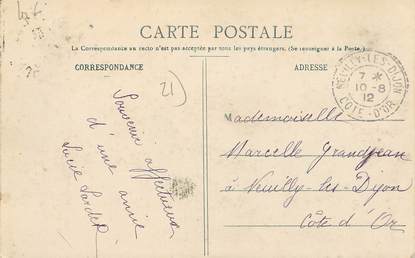 CARTE POSTALE
La Correspondance au recto n'est pas acceptée par tous les pays étrangers. (Se renseigner à la Poste.)
CORRESPONDANCE
ADRESSE
21
Souvenir affectueux
d'une amie
Lucie
NEUILLY-LES-DIJON
7 *
10-8
12
COTE-D'OR
Mademoiselle
Marcelle Grandjean
à Neuilly-les-Dijon
Côte d'Or